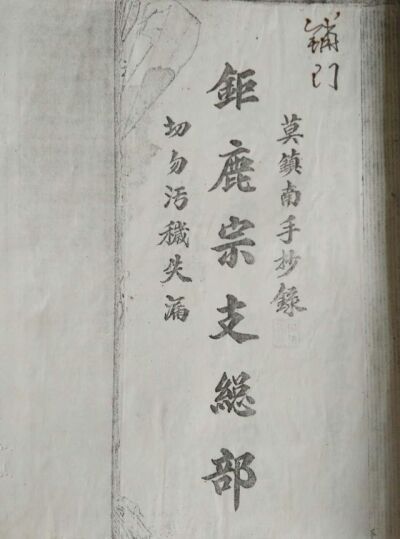 鋪门
莫鎮南手抄錄
鉅鹿宗支總部
切勿污穢失漏